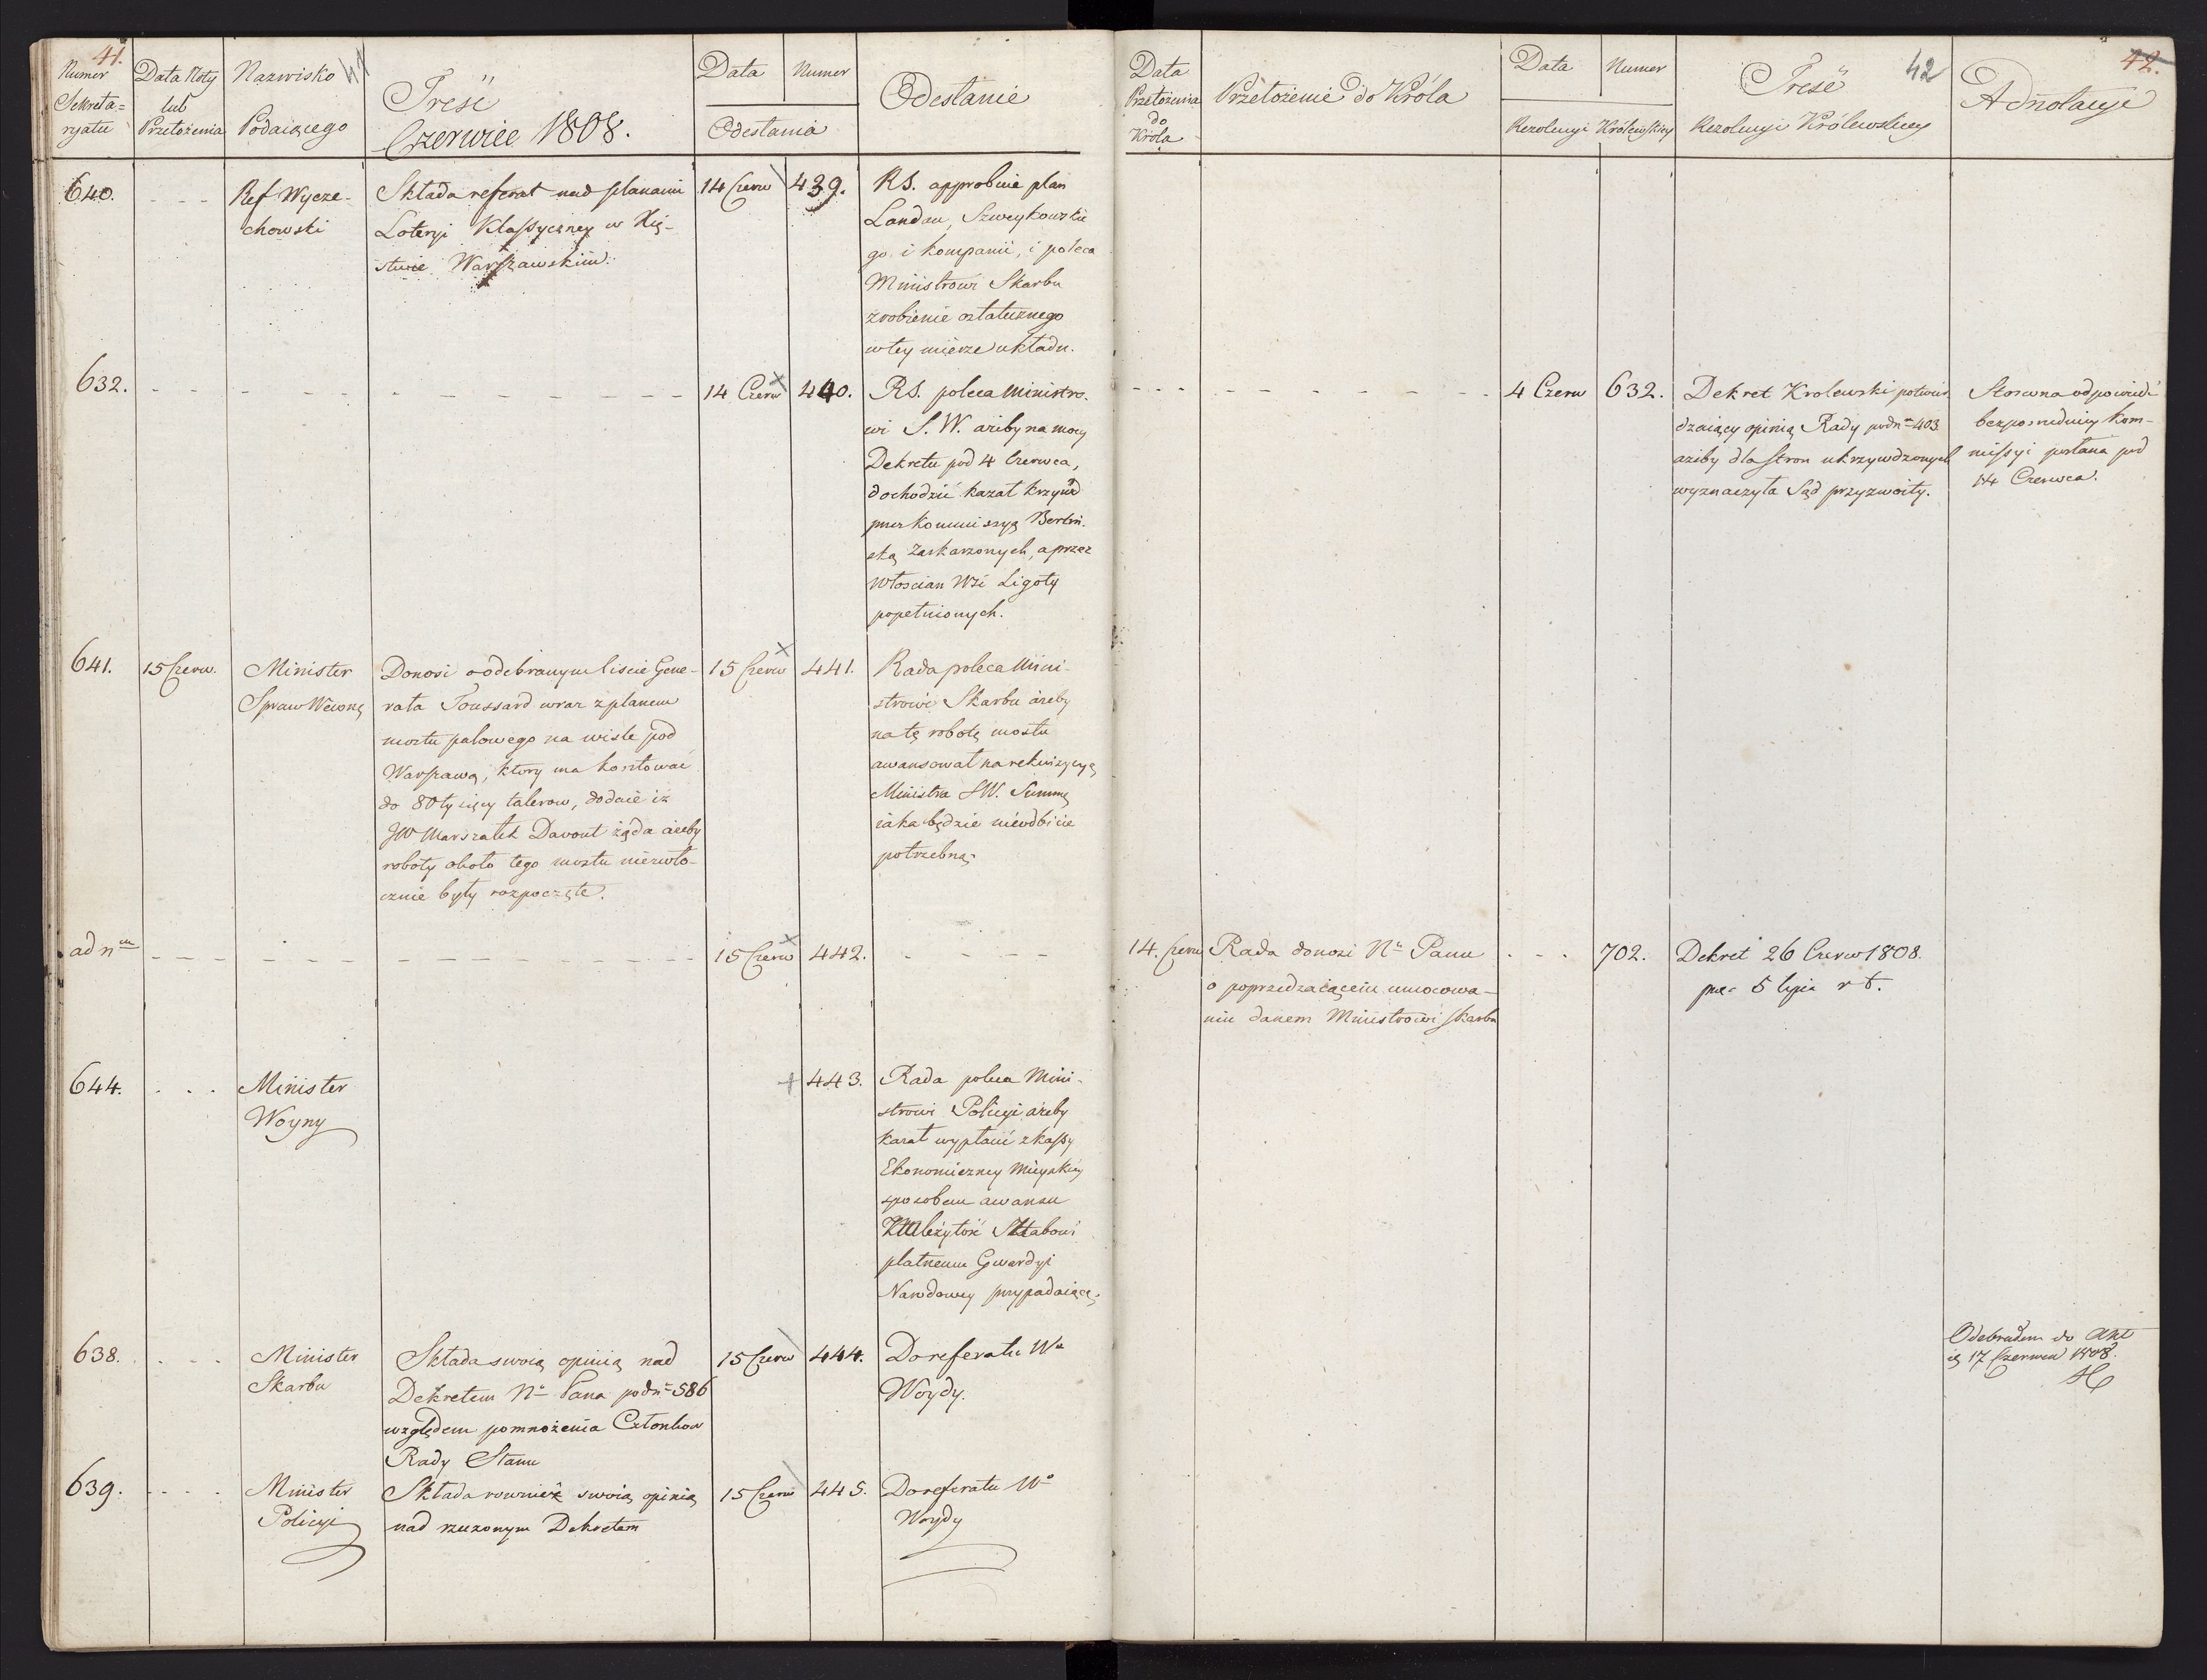 41.
Numer
Sekreta=
ryatu
Data Noty
lub
Przełożenia
Nazwisko
Podaiącego
41
Treść
Czerwiec 1808.
Data
Numer
Odesłania
Odesłanie
640.
- - -
Ref Wycze-
chowski
Składa referat nad planami
Loteryi Klassyczney w Xię-
stwie Warszawskim.
14 Czerw
439.
RS. approbuie plan
Landau, Szweykowskie
go i kompanii, i poleca
Ministrowi Skarbu
zrobienie ostatecznego
w tey mierze układu.
632.
14 Czerw
440.
RS. poleca Ministro-
wi S.W. ażeby na mocy
Dekretu pod 4 Czerwca,
dochodzić kazał krzywd
przez Kommissyą Berlin-
ską Zaskarżonych, a przez
Włoscian Wsi Ligoty
popełnionych.
641.
15 Czerw.
Minister
Spraw Wewnę
Donosi o odebranym liscie Gene-
rała Toussard wraz z planem
mostu palowego na wisle pod
Warszawą, ktory ma kosztować
do 80 tysięcy talerow, dodaie iż
JW Marszałek Davout żąda ażeby
roboty około tego mostu niezwło-
cznie były rozpoczęte.
15 Czerw
441.
Rada poleca Mini-
strowi Skarbu ażeby
na tę robotę mostu
awansował na rekwizycyą
Ministra SW. Summę
iaka będzie nieodbicie
potrzebną.
ad nm
15 Czerw
442.
644.
Minister
Woyny
443.
Rada poleca Mini-
strowi Policyi ażeby
kazał wypłacić z kassy
Ekonomiczney Mieyskiey
sposobem awansu
Należytość Sztabowi
płatnemu Gwardyi
Narodowey przypadaiącą.
638.
Minister
Skarbu
Składa swoią opinią nad
Dekretem No Pana pod no 586
względem pomnożenia Członkow
Rady Stanu
15 Czerw
444.
Do referatu Wo
Woydy.
639.
Minister
Policyi
Składa rownież swoią opinią
nad rzeczonym Dekretem
15 Czerw
445.
Do referatu Wo
Woydy
Data
Przełożenia
do
Króla
Przełożenie do Króla
Data
Numer
Rezolucyi Królewskiey
Treść
Rezolucyi Królewskiey
42
42.
Adnotacye
4 Czerw
632.
Dekret Krolewski potwier
dzaiący opinią Rady pod no 403
ażeby dla stron ukrzywdzonych
wyznaczyła Sąd przyzwoity.
Stosowna odpowiedź
bezposredniey Kom-
missyi posłana pod
14 Czerwca.
14. Czerw
Rada donosi No Panu
o poprzedzaiącem umocowa-
niu danem Ministrowi Skarbu
702.
Dekret 26 Czerw 1808.
5 lipca r b.
Odebrałem do Akt
17 Czerwca 1808.